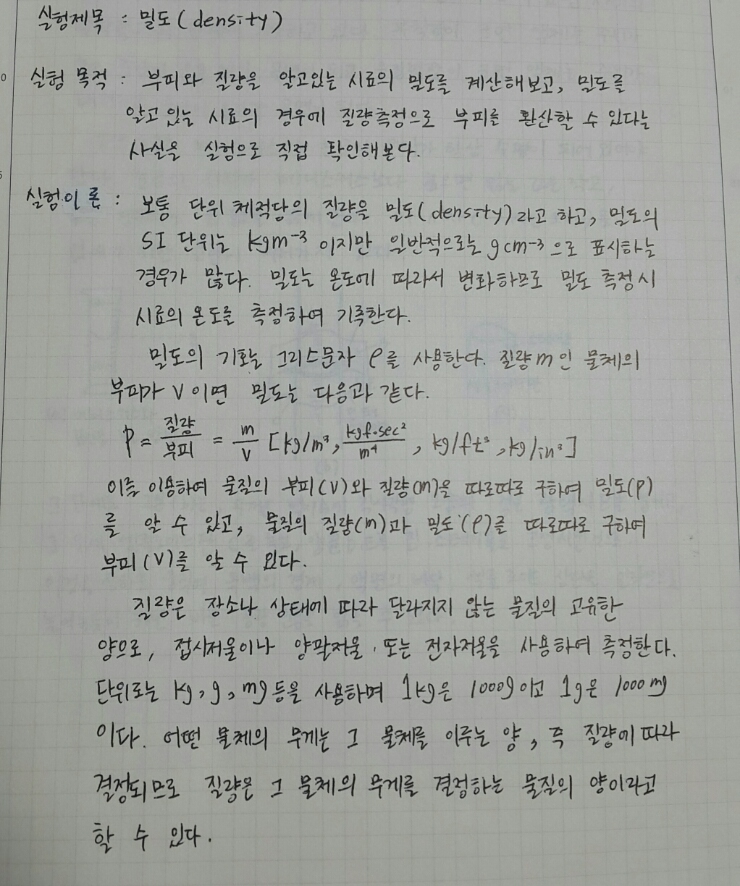 실험제목 : 밀도(density)
실험 목적 : 부피와 질량을 알고있는 시료의 밀도를 계산해보고, 밀도를
알고 있는 시료의 경우에 질량측정으로 부피를 환산할 수 있다는
사실을 실험으로 직접 확인해본다.
실험이론 : 보통 단위 체적당의 질량을 밀도(density)라고 하고, 밀도의
SI 단위는 kgm⁻³ 이지만 일반적으로는 gcm⁻³으로 표시하는
경우가 많다. 밀도는 온도에 따라서 변화하므로 밀도 측정시
시료의 온도를 측정하여 기록한다.
밀도의 기호는 그리스문자 ρ를 사용한다. 질량 m인 물체의
부피가 V이면 밀도는 다음과 같다.
ρ = 질량/부피 = m/V [kg/m³, kgf·sec²/m⁴, kg/ft³, kg/in³]
이를 이용하여 물질의 부피(V)와 질량(m)을 따로따로 구하여 밀도(ρ)
를 알 수 있고, 물질의 질량(m)과 밀도(ρ)를 따로따로 구하여
부피(V)를 알 수 있다.
질량은 장소나 상태에 따라 달라지지 않는 물질의 고유한
양으로, 접시저울이나 양팔저울, 또는 전자저울을 사용하여 측정한다.
단위로는 kg, g, mg 등을 사용하며 1kg은 1000g이고 1g은 1000mg
이다. 어떤 물체의 무게는 그 물체를 이루는 양, 즉 질량에 따라
결정되므로 질량은 그 물체의 무게를 결정하는 물질의 양이라고
할 수 있다.